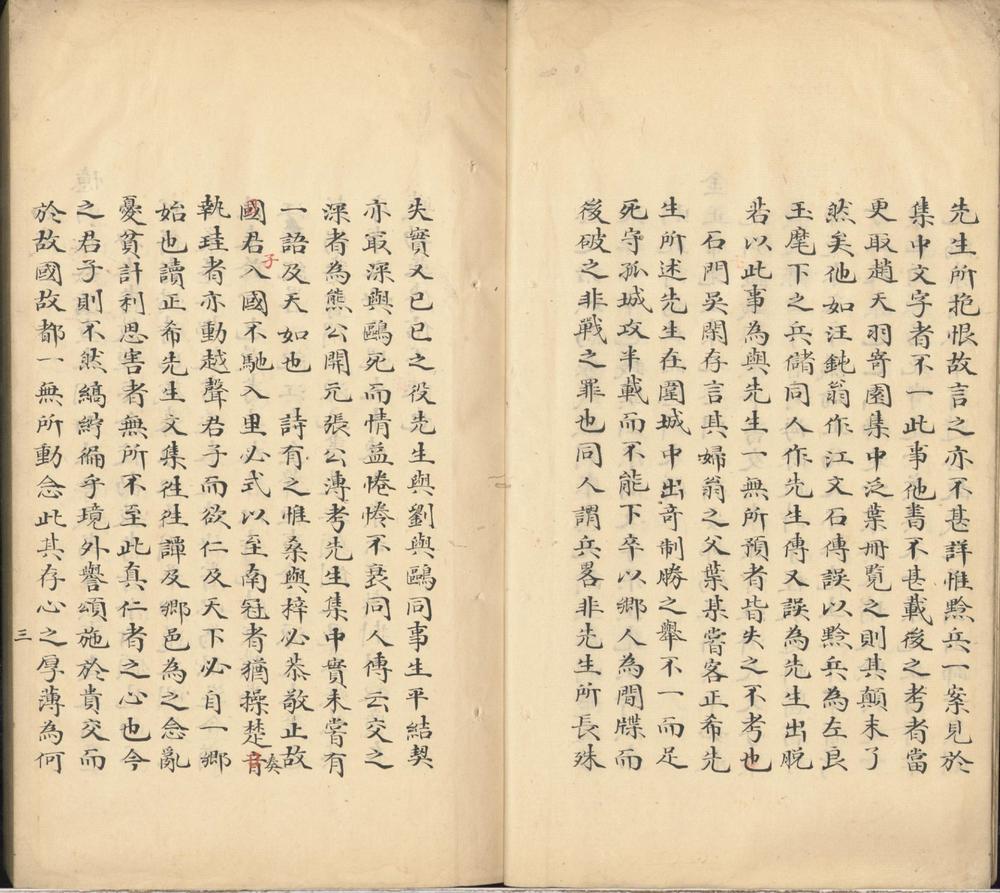 先生所抱恨故言之亦不甚詳惟黔兵一案見於
集中文字者不一此事他書不甚載後之考者當
更取趙天羽寄園集中泛葉冊覧之則其顛末了
然矣他如汪鈍翁作江文石傳誤以黔兵為左良
玉麾下之兵儲同人作先生傳又誤為先生出脫
若以此事為與先生一無所預者皆失之不考也
石門吳閑存言其婦翁之父葉某甞客正希先
生所述先生在圍城中出奇制勝之舉不一而足
死守孤城攻半載而不能下卒以鄉人為間牒而
後破之非戰之罪也同人謂兵畧非先生所長殊
失實又己巳之役先生與劉與鷗同事生平結契
亦最深與鷗死而情益惓惓不衰同人傳云交之
深者為熊公開元張公溥考先生集中實未甞有
一語及天如也　詩有之惟桑與梓必恭敬止故
國君入國不馳入里必式以至南冠者猶操楚音
子
奏
執珪者亦動越聲君子而欲仁及天下必自一鄉
始也讀正希先生文集徃徃譚及鄉邑為之念亂
憂貧計利思害者無所不至此真仁者之心也今
之君子則不然縞紵徧乎境外譽頌施於貴交而
於故國故都一無所動念此其存心之厚薄為何
三